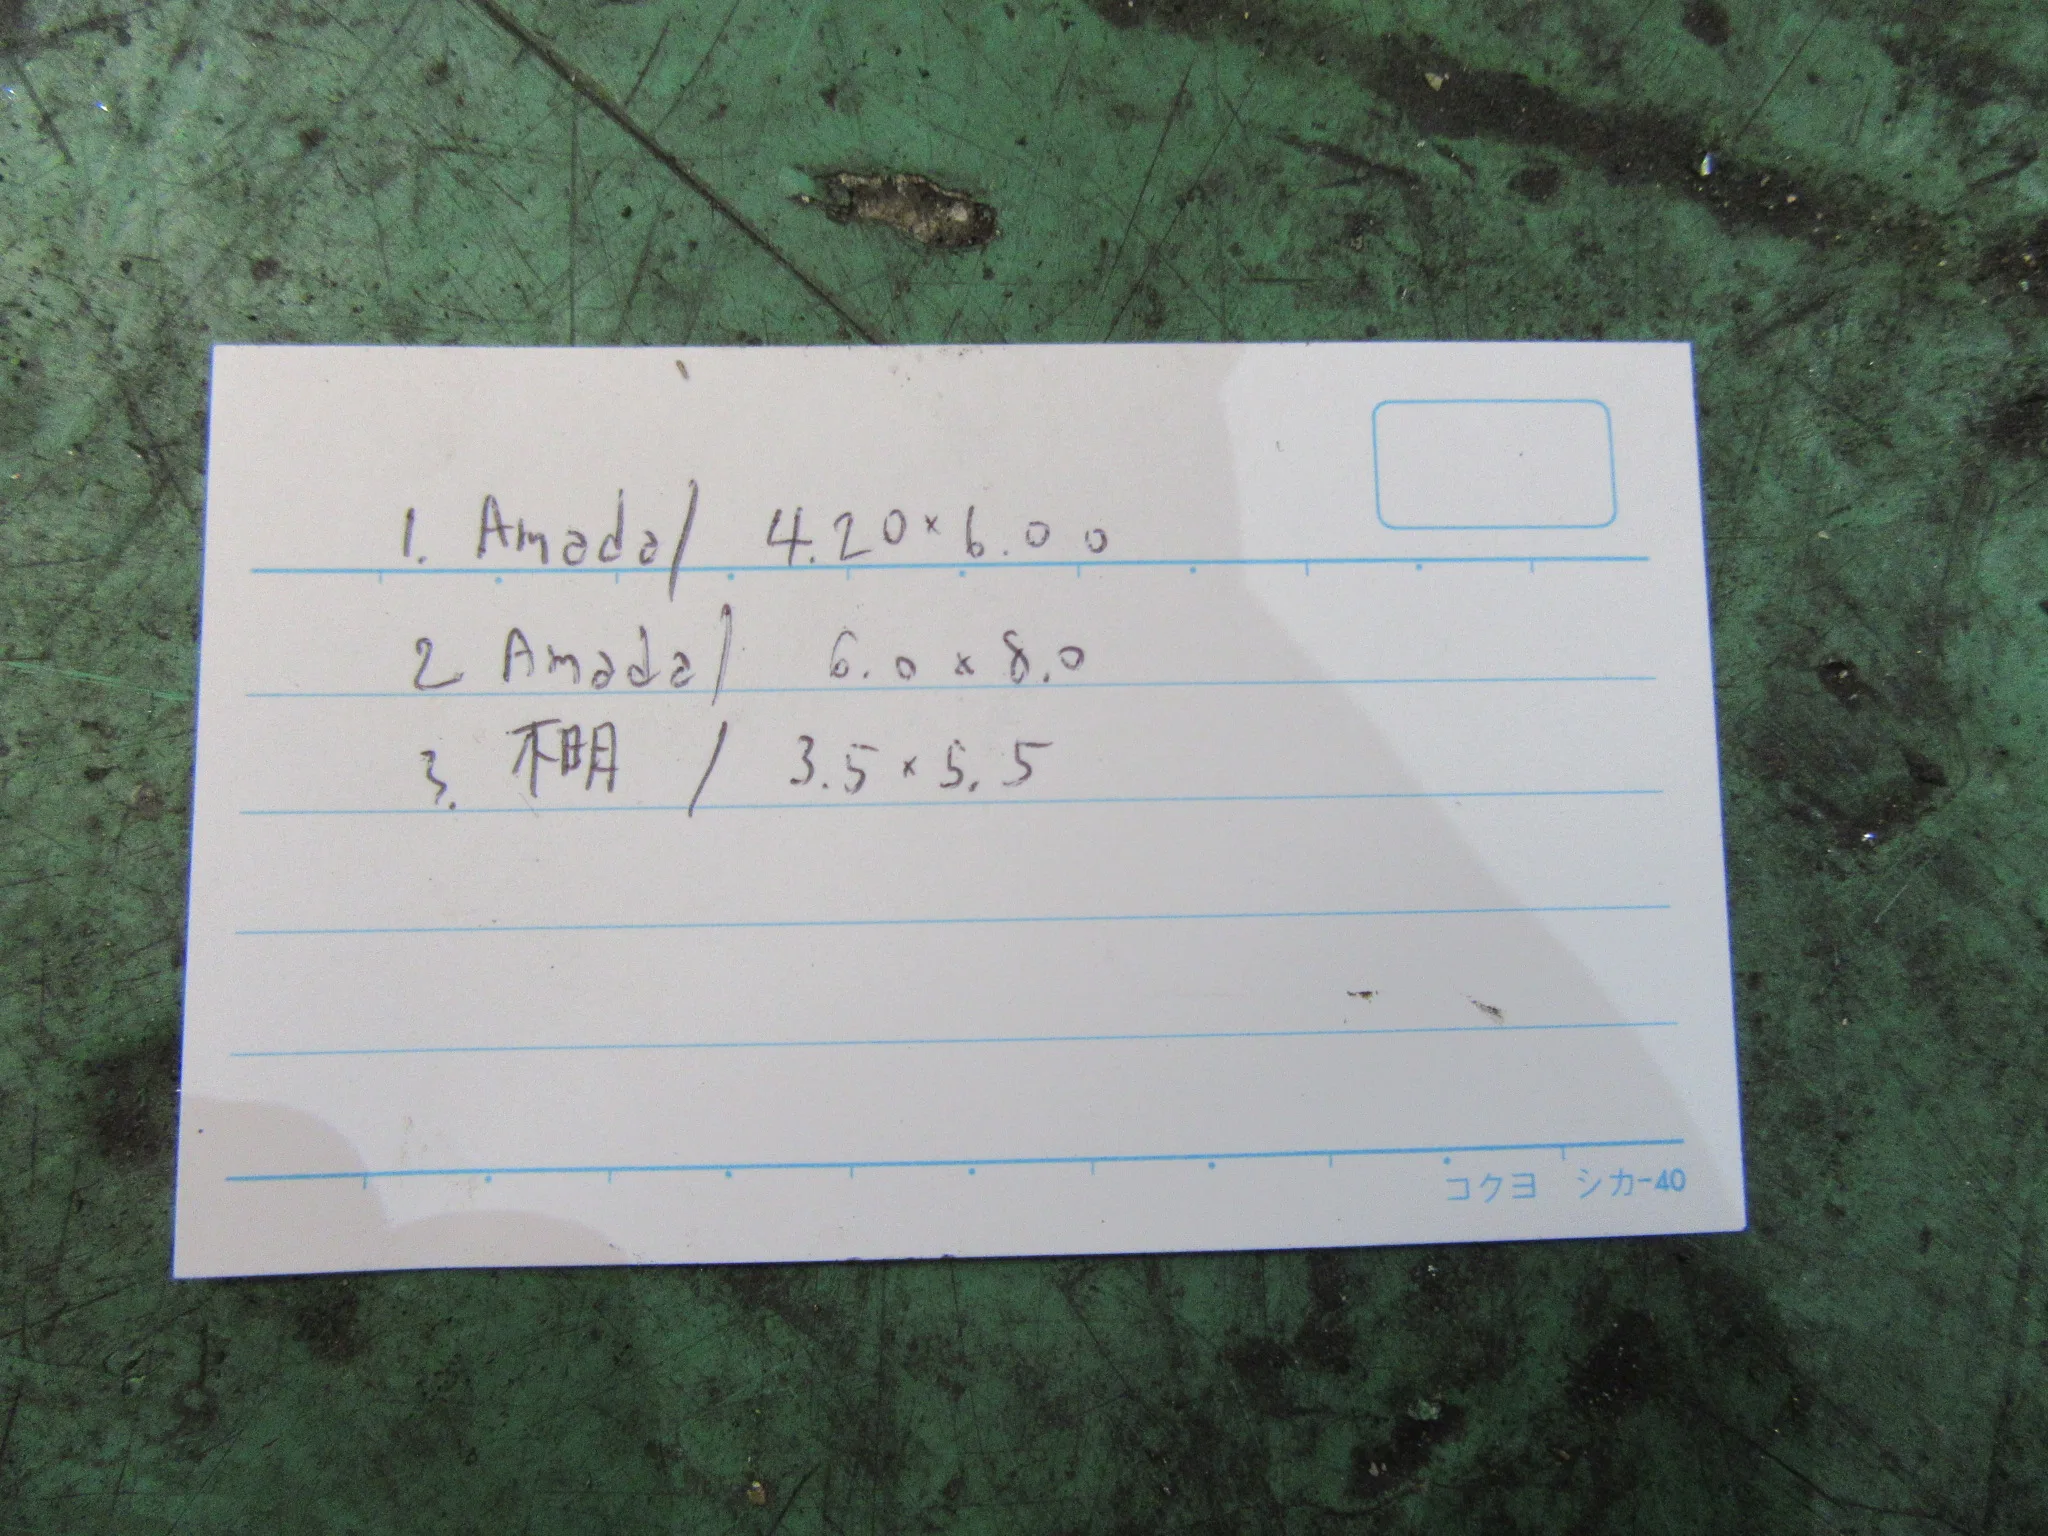 1. Amada/ 4.20×6.00
2 Amada/ 6.0×8.0
3. 不明 / 3.5×5.5
コクヨ シカ-40